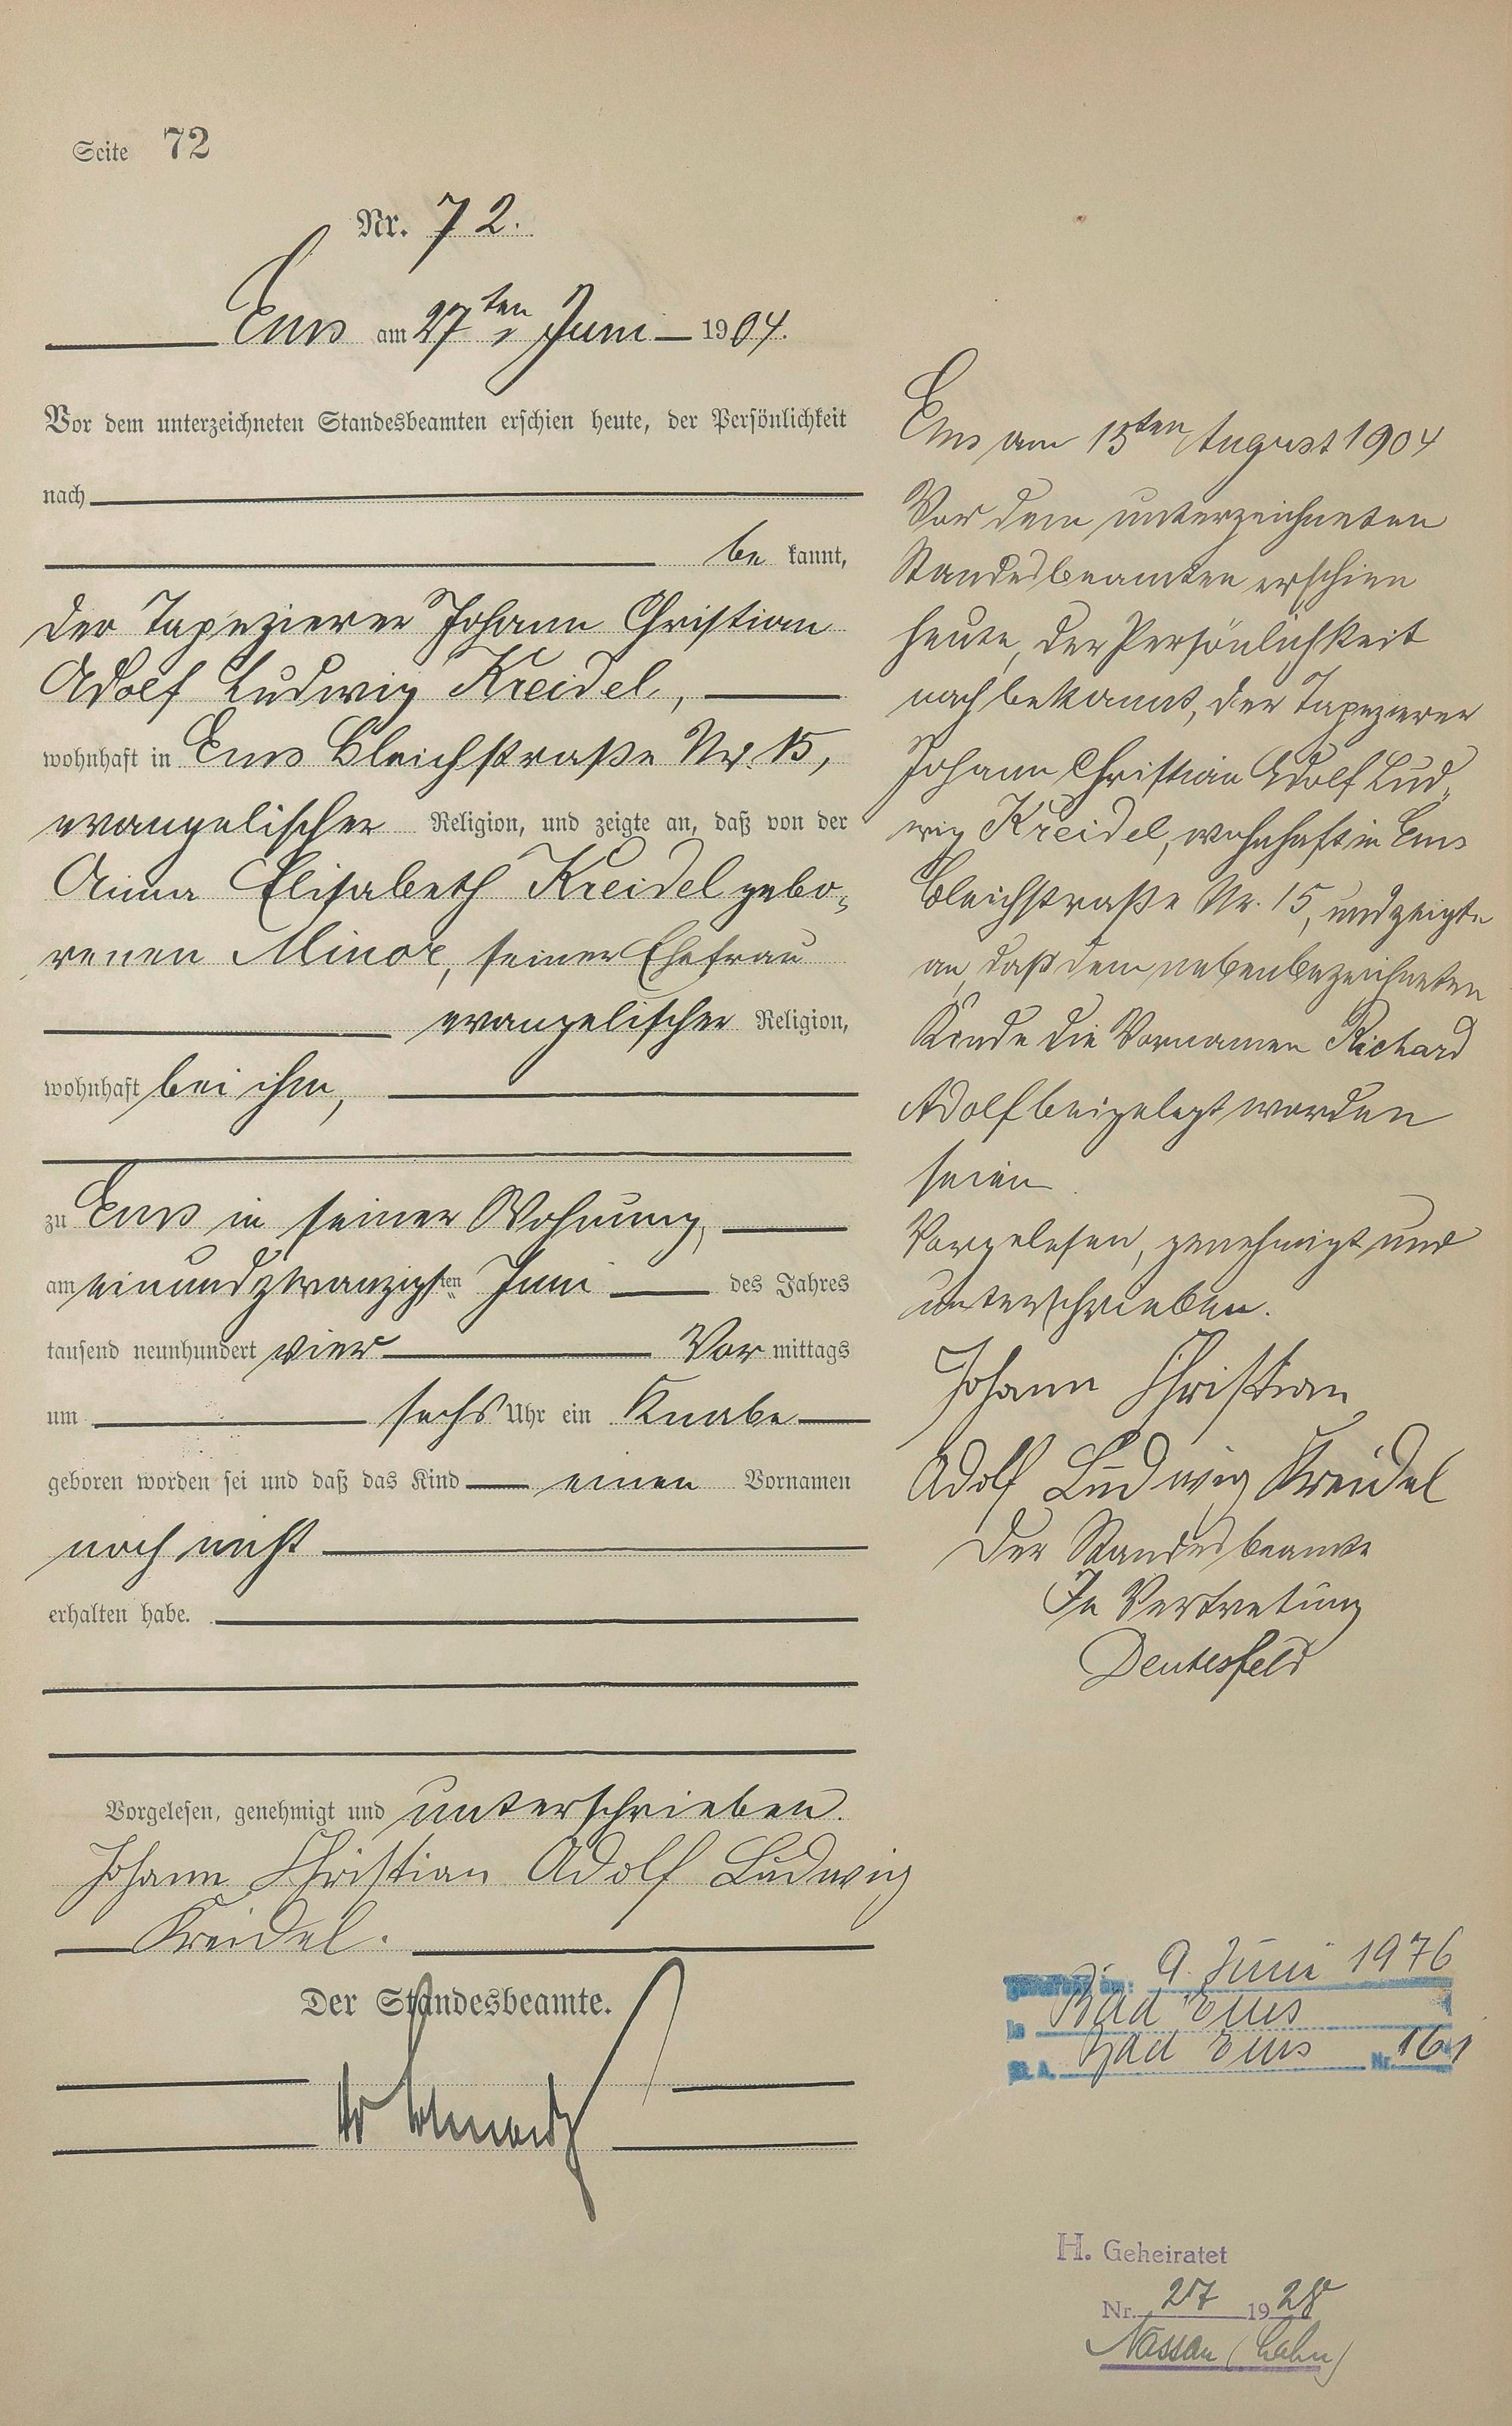 Seite 72
Nr. 72.
Ems am 27ten Juni 1904.
Vor dem unterzeichneten Standesbeamten erschien heute, der Persönlichkeit
nach
be kannt,
der Tapezierer Johann Christian
Adolf Ludwig Kreidel,
wohnhaft in Ems Bleichstraße Nr. 15,
evangelischer Religion, und zeigte an, daß von der
Anna Elisabeth Kreidel gebo„
renen Minor, seiner Ehefrau
evangelischer Religion,
wohnhaft bei ihm,
zu Ems in seiner Wohnung,
am einundzwanzigsten Juni des Jahres
tausend neunhundert vier Vor mittags
um sechs Uhr ein Knabe
geboren worden sei und daß das Kind einen Vornamen
noch nicht
erhalten habe.
Vorgelesen, genehmigt und unterschrieben.
Johann Christian Adolf Ludwig
Kreidel.
Der Standesbeamte.
Ems am 15ten August 1904
Vor dem unterzeichneten
Standesbeamten erschien
heute, der Persönlichkeit
nach bekannt, der Tapezierer
Johann Christian Adolf Lud„
wig Kreidel, wohnhaft in Ems
Bleichstraße Nr. 15, und zeigte
an, daß dem nebenbezeichneten
Kinde die Vornamen Richard
Adolf beigelegt worden
seien
Vorgelesen, genehmigt und
unterschrieben.
Johann Christian
Adolf Ludwig Kreidel
Der Standesbeamte
In Vertretung
Deutesfeld
gestorben am: 9. Juni 1976
in Bad Ems
St. A. Bad Ems Nr. 161
H. Geheiratet
Nr. 27 1928
Nassau (Lahn)